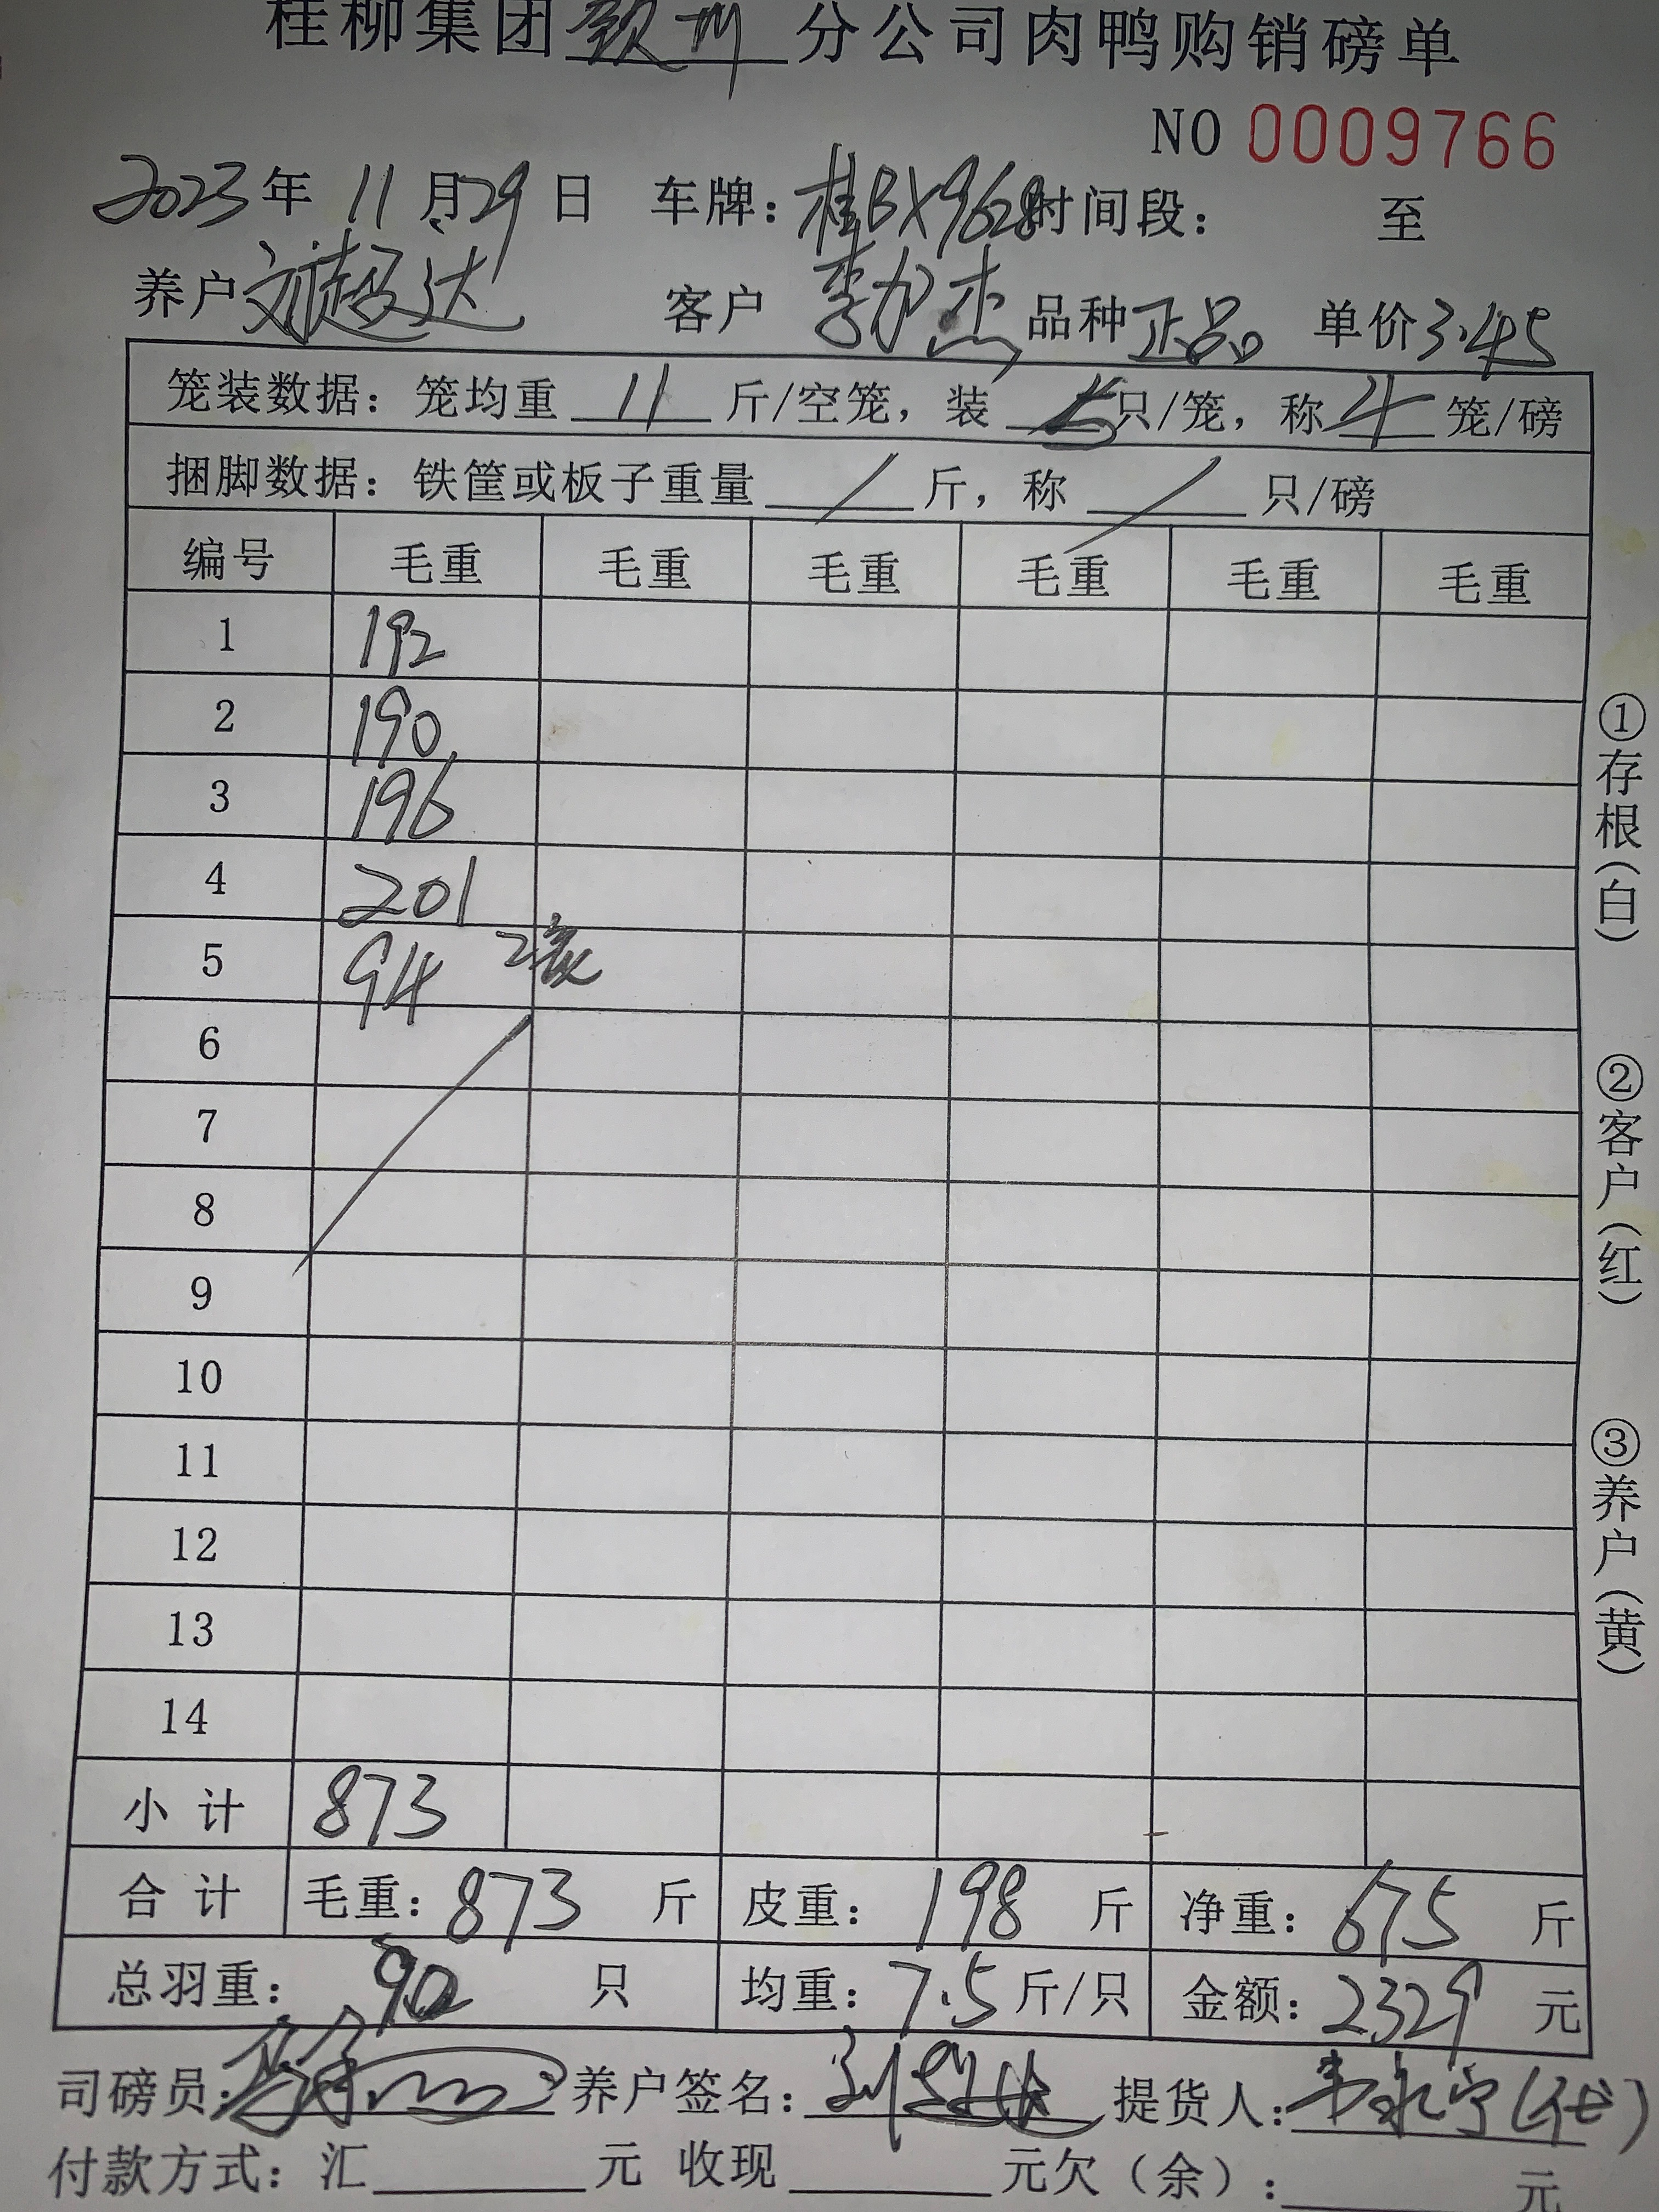 桂柳集团钦州分公司肉鸭购销磅单
NO 0009766
2023年 11月29日 车牌：桂BX9628时间段： 至
养户刘超达 客户 李加杰 品种正品 单价3.45
笼装数据：笼均重 11 斤/空笼，装 5只/笼，称 4 笼/磅
捆脚数据：铁筐或板子重量 / 斤，称 / 只/磅
编号 毛重 毛重 毛重 毛重 毛重 毛重
1 192
2 190
3 196
4 201
5 94 2
6
7
8
9
10
11
12
13
14
小计 873
合计 毛重：873 斤 皮重：198 斤 净重：675 斤
总羽重：90 只 均重：7.5斤/只 金额：2329 元
司磅员： 养户签名：刘超达 提货人：韦永宁(代)
付款方式：汇 元 收现 元欠（余）： 元
①存根（白）
②客户（红）
③养户（黄）